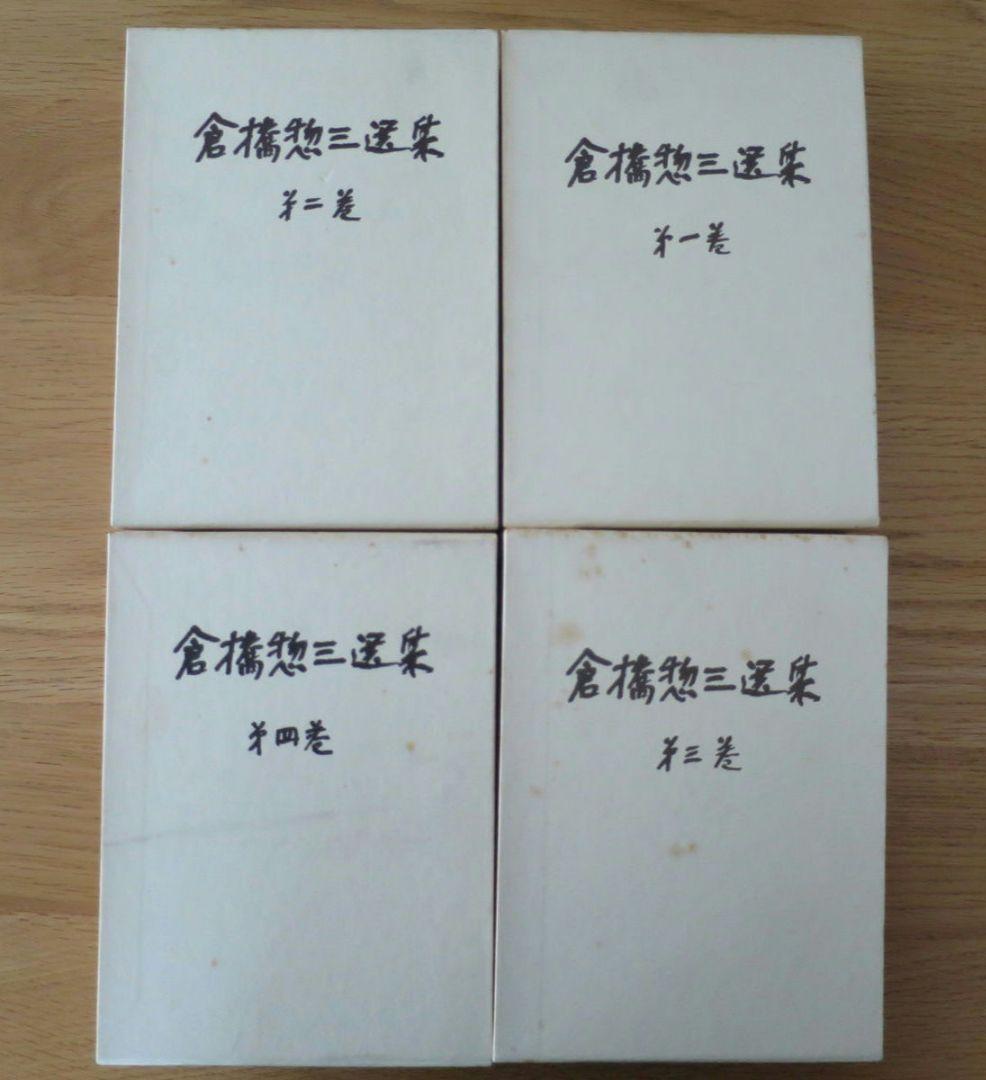 倉橋惣三選集
第二巻
倉橋惣三選集
第一巻
倉橋惣三選集
第四巻
倉橋惣三選集
第三巻